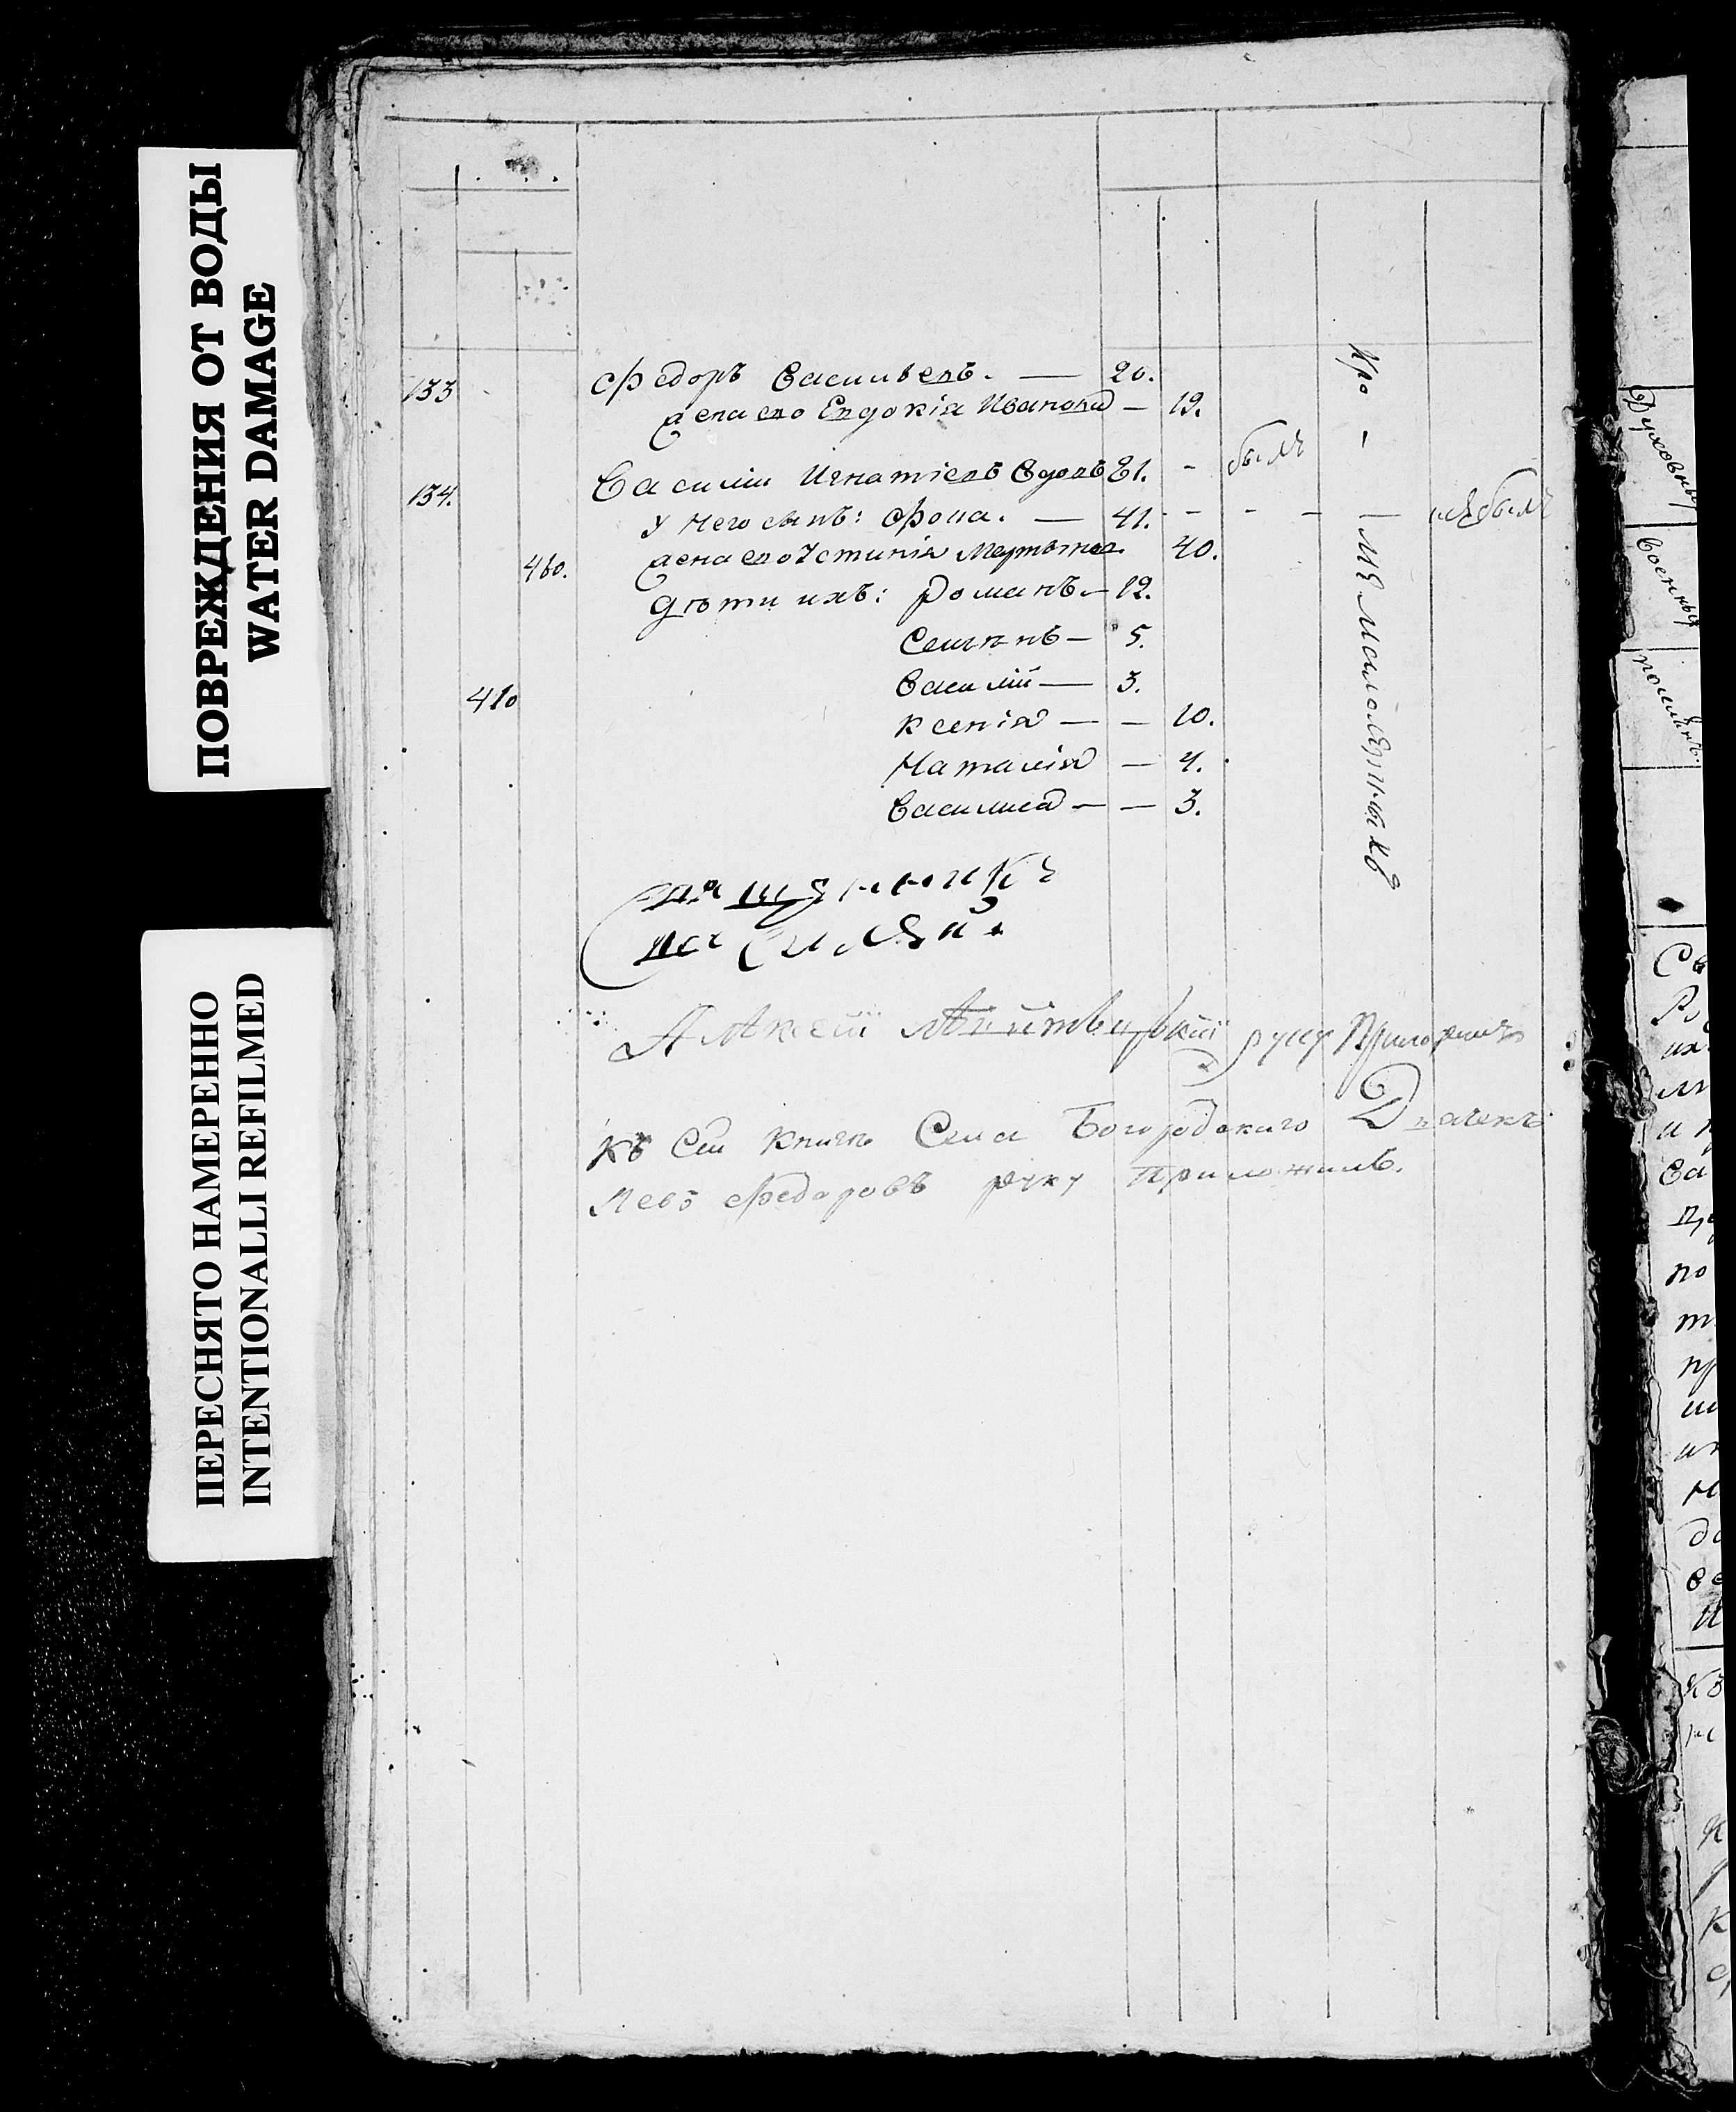 ПОВРЕЖДЕНИЯ ОТ ВОДЫ
WATER DAMAGE
ПЕРЕСНЯТО НАМЕРЕННО
INTENTIONALLI REFILMED
133 Федоръ Васильевъ. — 20.
жена ево Евдокія Иванова — 19.
134. Василии Игнатіевъ вдовъ 81. - былъ
у него сынъ: Фома. — 41. - - - — не былъ
460. жена ево Устинія Мартынова 40.
дѣти ихъ: Романъ — 12.
Семіонъ — 5.
410 Василій — 3.
Ксенія — — 10.
Наталія — 4.
Василиса — — 3.
Кро - мѣ малолѣтныхъ
Священникъ
Алексій руку приложилъ
Къ сей книгѣ Села Богородскаго Дьячекъ
Левъ Федоровъ руку приложилъ.
Духовны
Военны